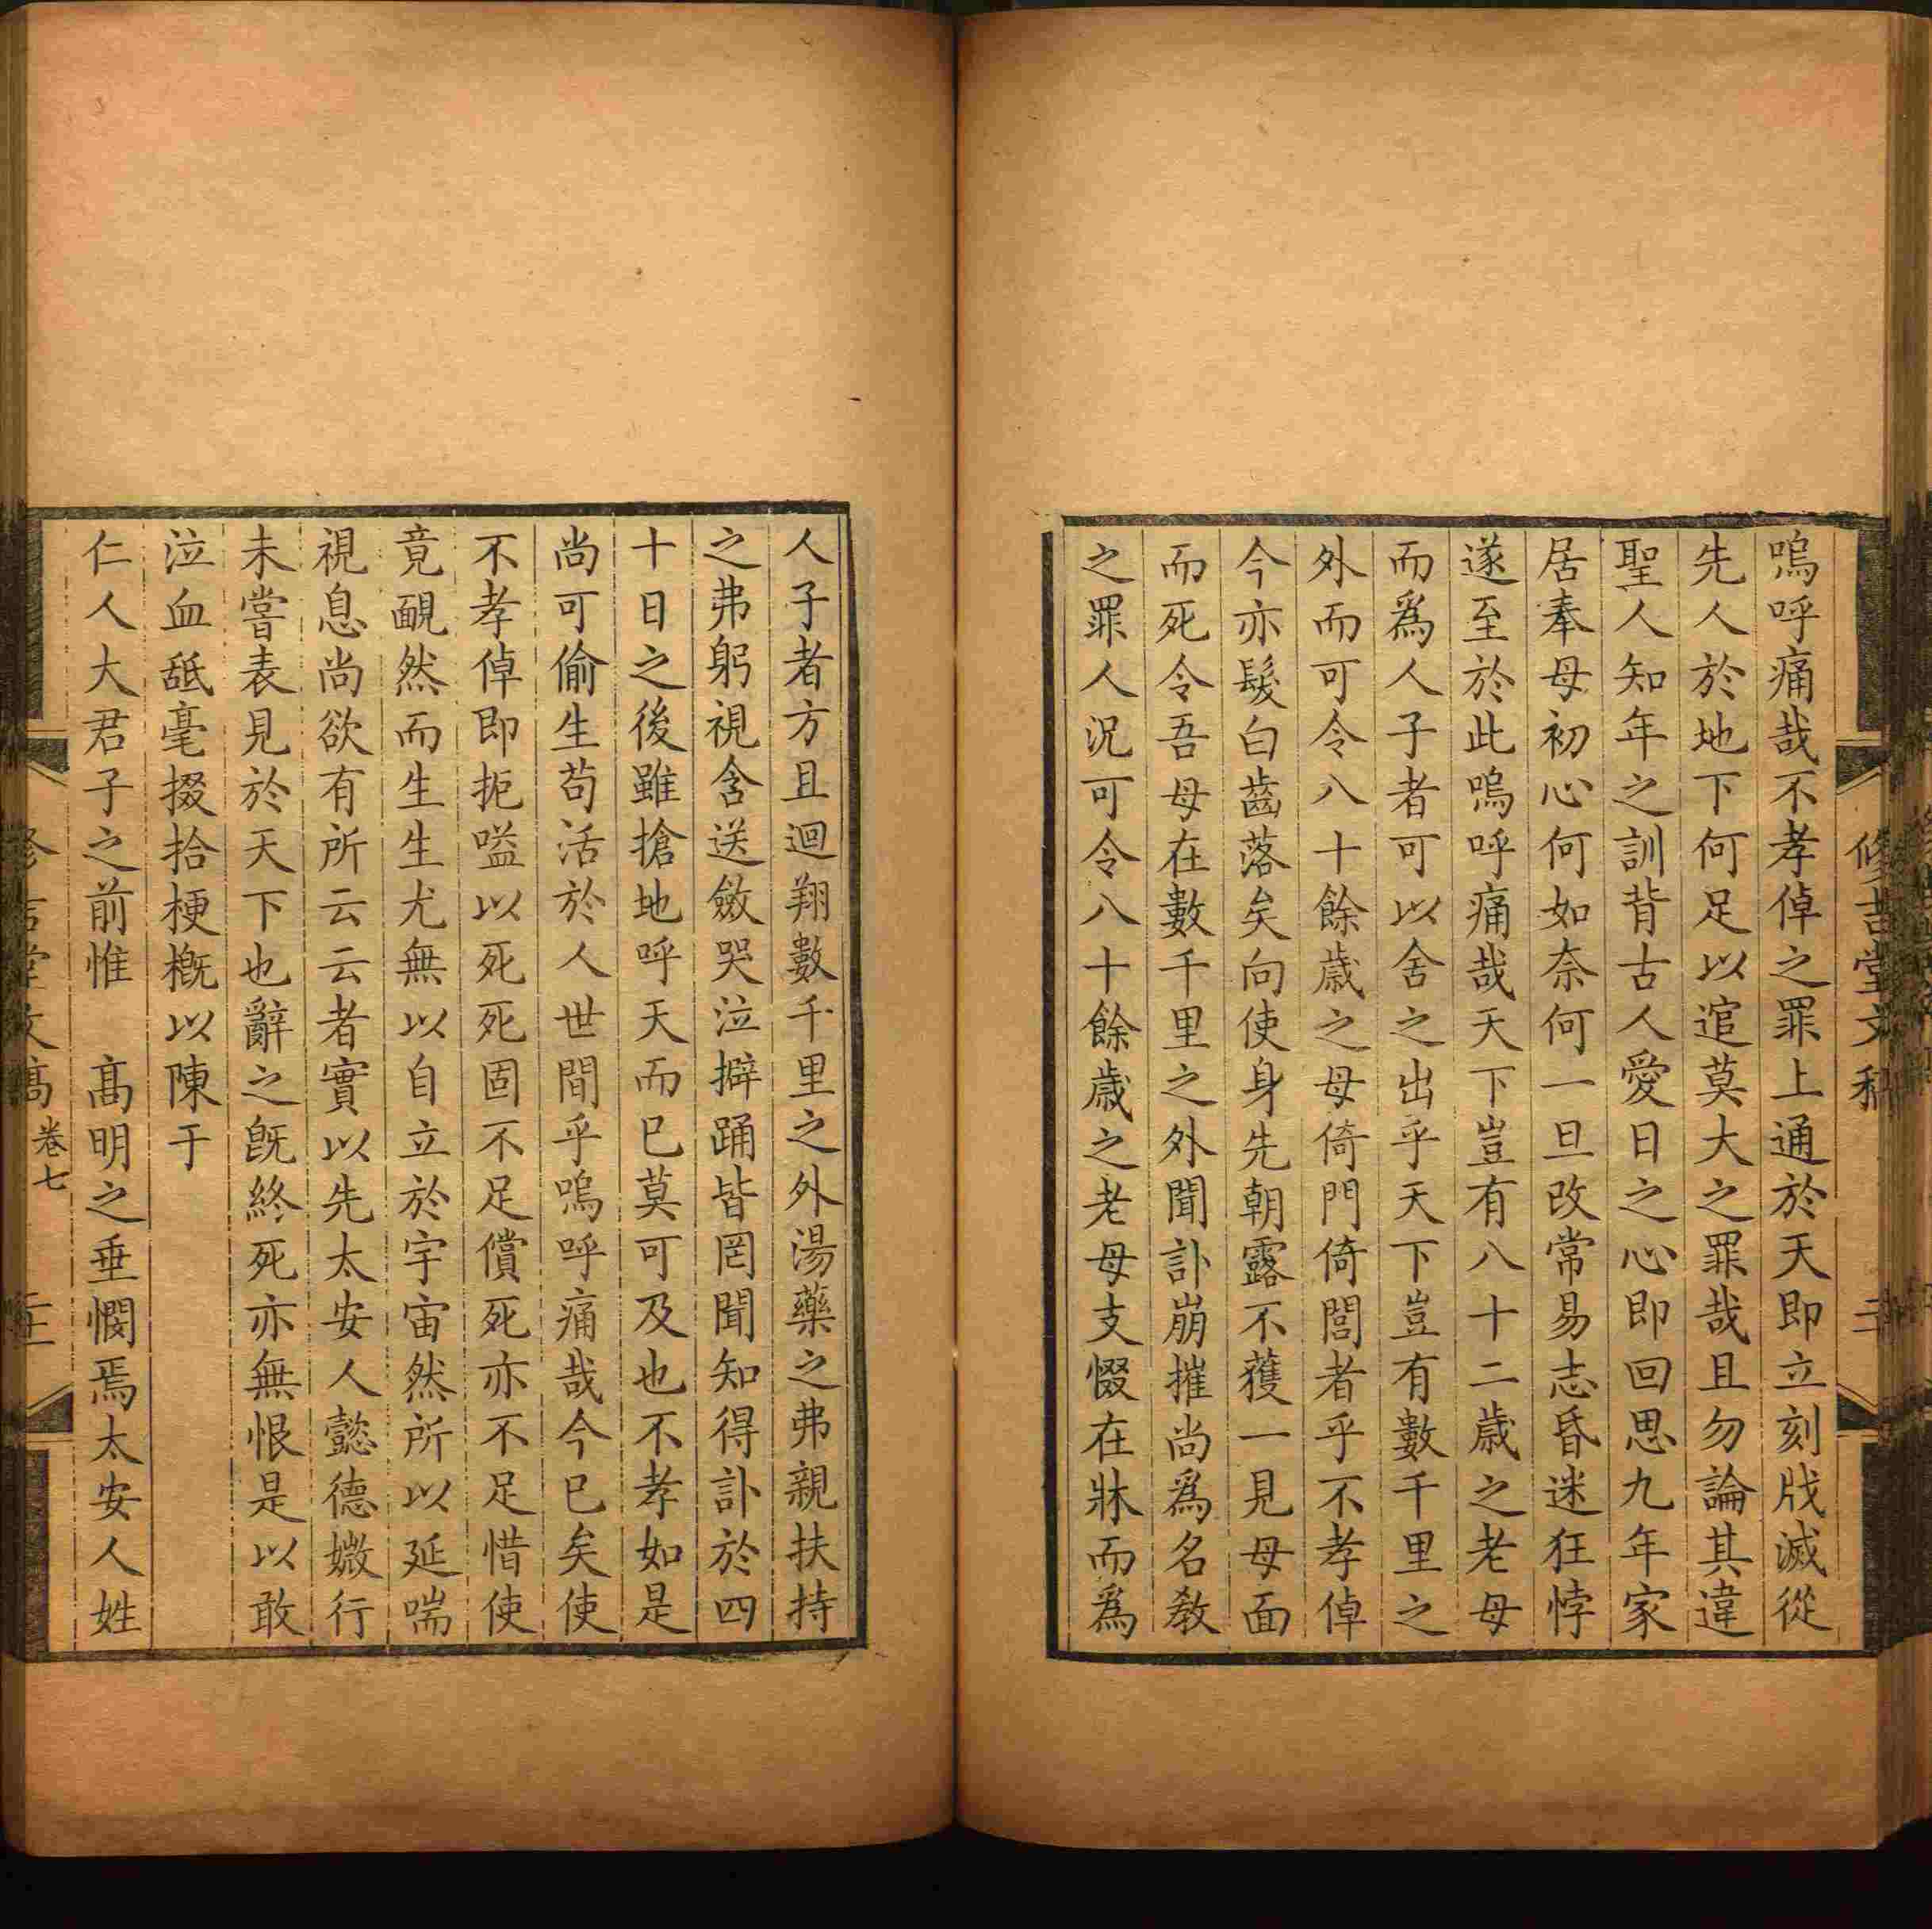 嗚呼痛哉不孝倬之罪上通於天即立刻戕滅從
先人於地下何足以逭莫大之罪哉且勿論其違
聖人知年之訓背古人愛日之心即回思九年家
居奉母初心何如奈何一旦改常易志昏迷狂悖
遂至於此嗚呼痛哉天下豈有八十二歳之老母
而爲人子者可以舍之出乎天下豈有數千里之
外而可令八十餘歳之母倚門倚閭者乎不孝倬
今亦髮白齒落矣向使身先朝露不獲一見母面
而死令吾母在數千里之外聞訃崩摧尚爲名教
之罪人況可令八十餘歳之老母支惙在牀而爲
人子者方且迴翔數千里之外湯藥之弗親扶持
之弗躬視含送斂哭泣擗踊皆罔聞知得訃於四
十日之後雖搶地呼天而已莫可及也不孝如是
尚可偷生苟活於人世間乎嗚呼痛哉今已矣使
不孝倬即扼嗌以死死固不足償死亦不足惜使
竟靦然而生生尤無以自立於宇宙然所以延喘
視息尚欲有所云云者實以先太安人懿德媺行
未嘗表見於天下也辭之旣終死亦無恨是以敢
泣血舐毫掇拾梗槪以陳于
仁人大君子之前惟　髙明之垂憫焉太安人姓
卷七